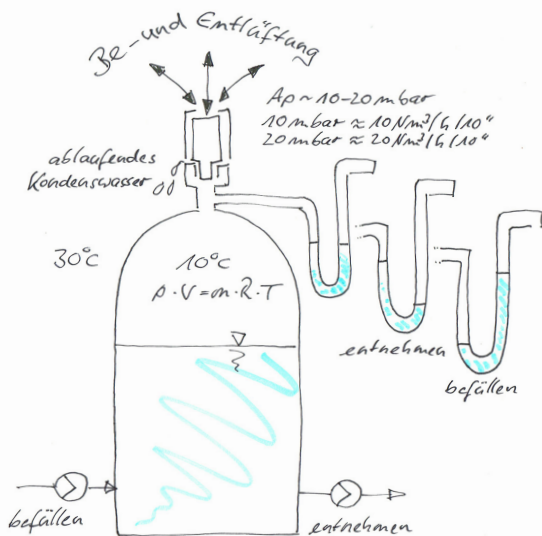 Be- und Entlüftung
Δp ~ 10-20 mbar
10 mbar ≈ 10 Nm³/h/10"
20 mbar ≈ 20 Nm³/h/10"
ablaufendes
Kondenswasser
30°C
10°C
p · V = m · R · T
entnehmen
befüllen
befüllen
entnehmen